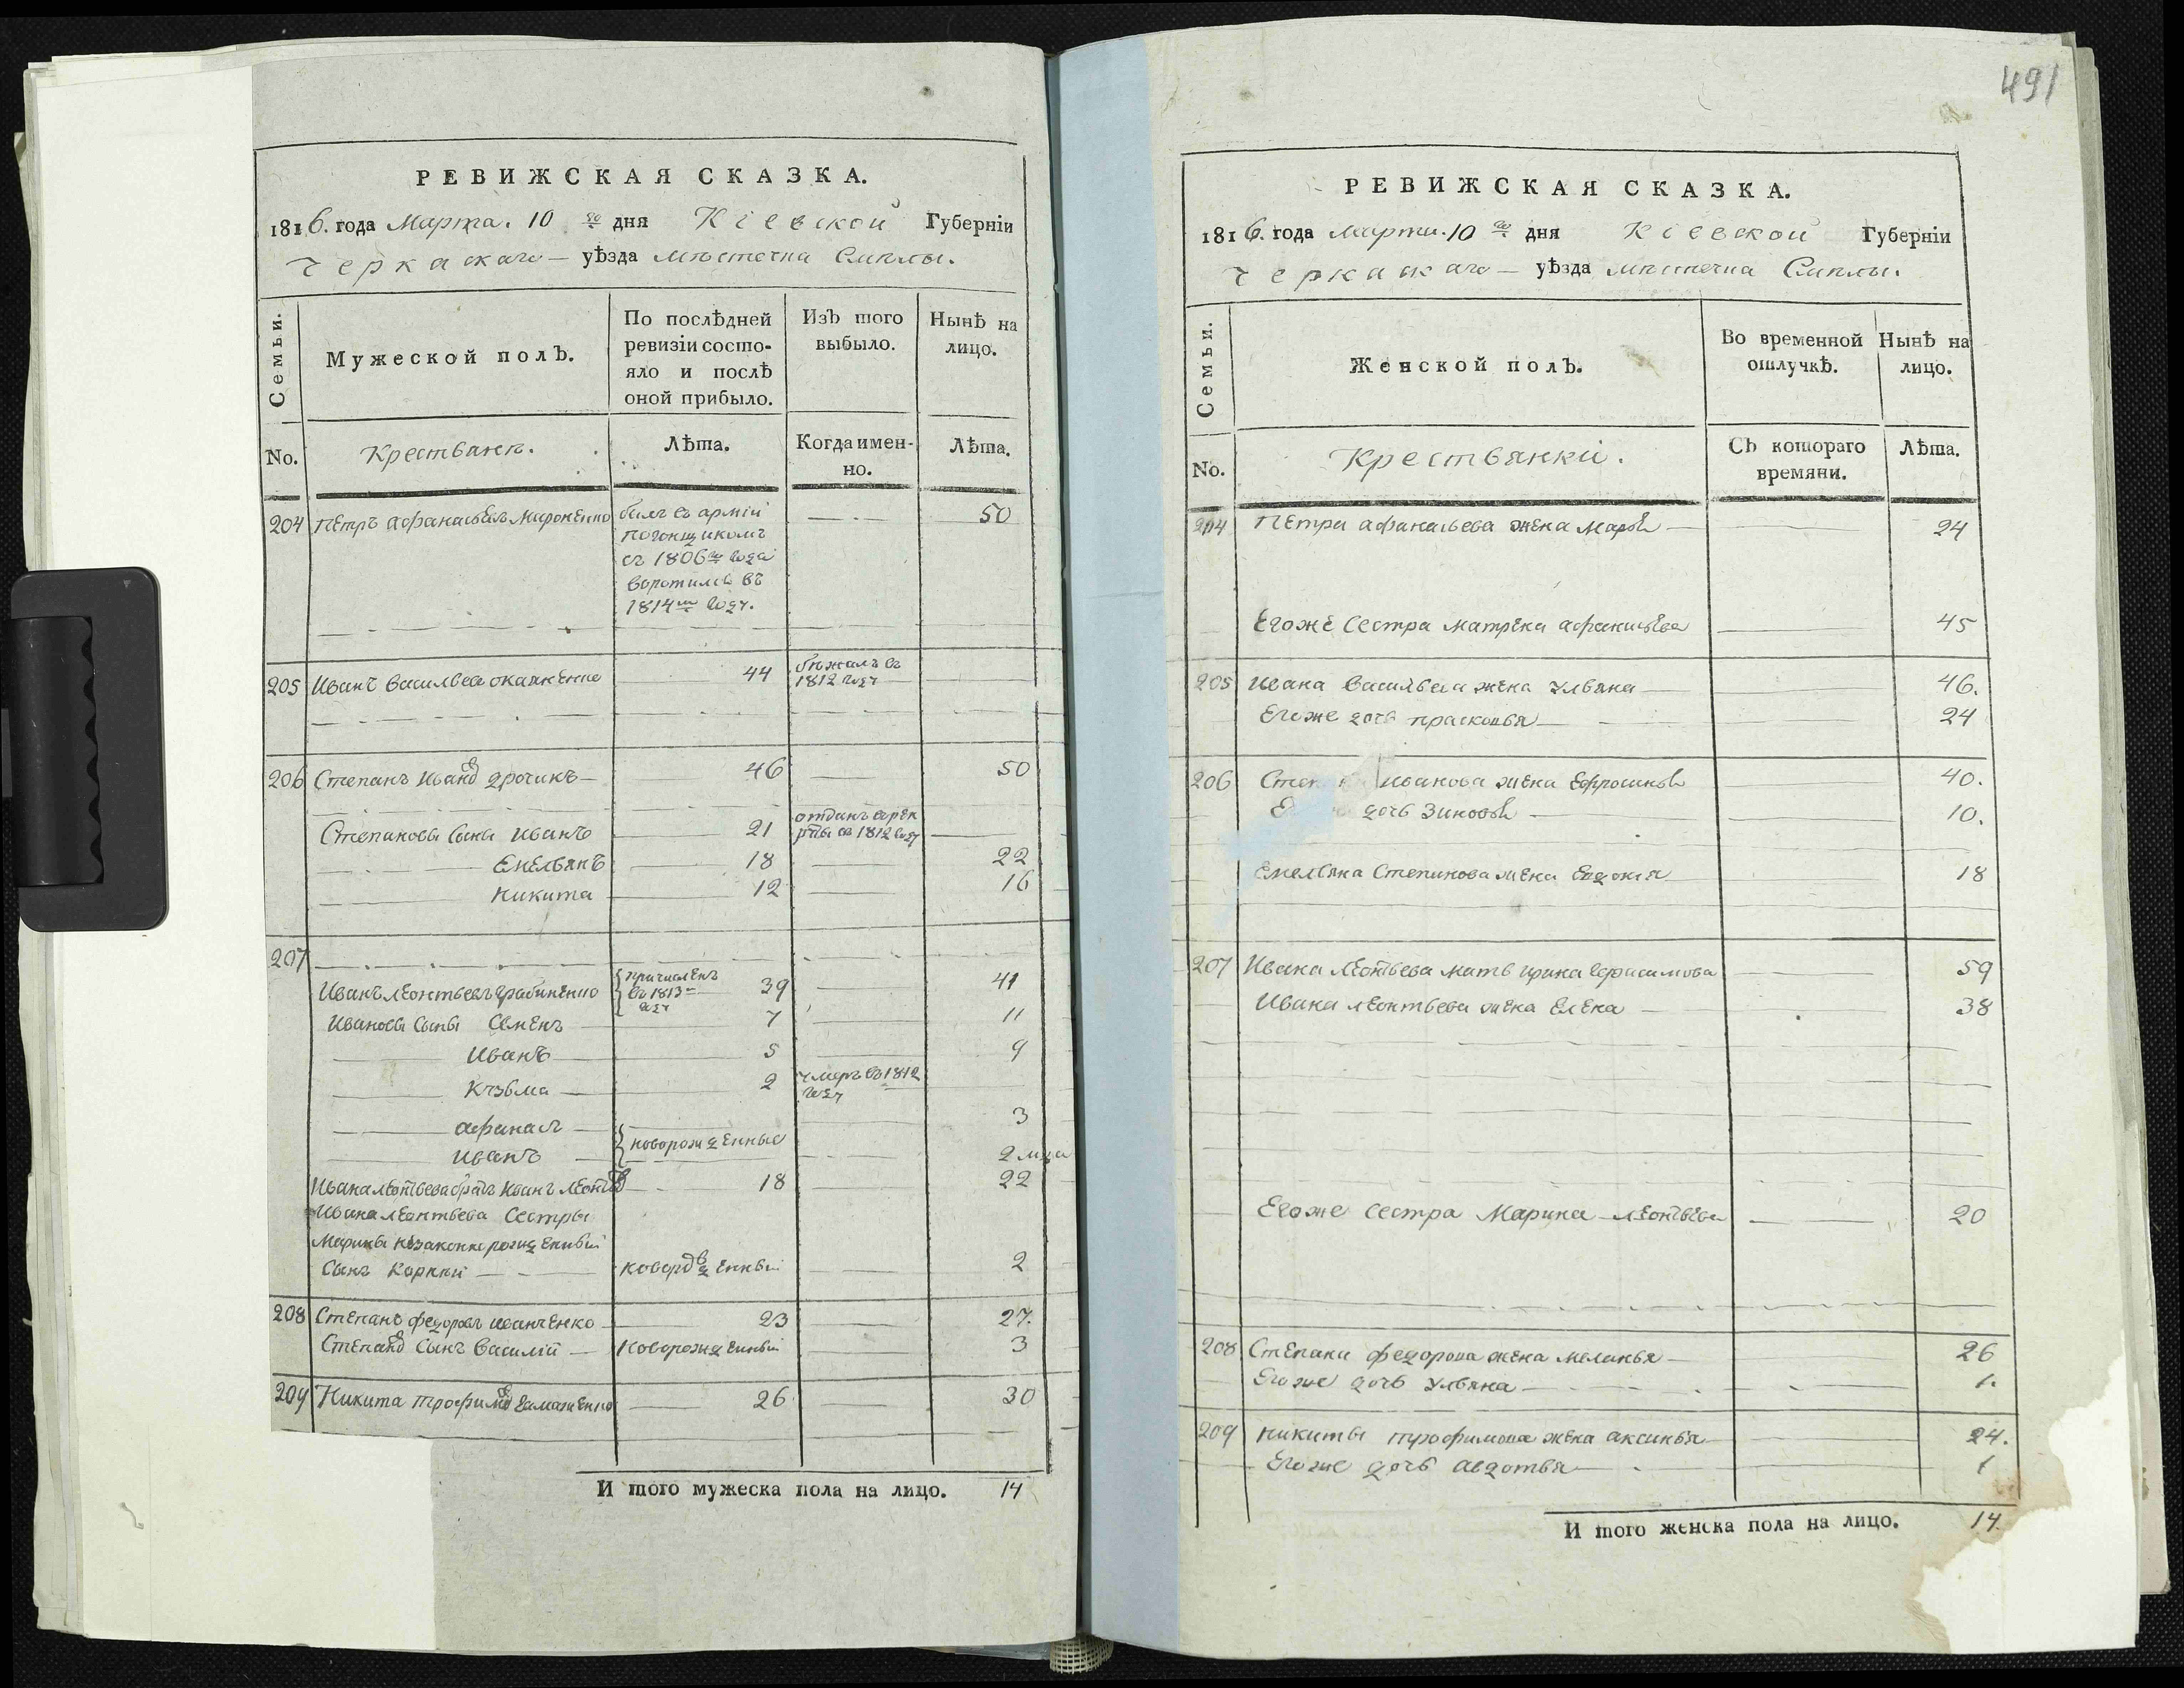 РЕВИЖСКАЯ СКАЗКА.
1816. года Марта. 10 го дня Кіевской Губерніи
Черкаскаго уѣзда мѣстечка Смѣлы.
Семьи.
Мужеской полъ.
По послѣдней ревизіи состояло и послѣ оной прибыло.
Изъ того выбыло.
Нынѣ на лицо.
No.
Крестьянъ.
Лѣта.
Когда именно.
Лѣта.
204 Петръ афанасьевъ Мироненко былъ въ арміи 50
погонщикомъ
съ 1806го года
воротился въ
1814м году.
205 Иванъ Васильевъ 44 бѣжалъ въ
1812 году
206 Степанъ Ивановъ Дрочикъ 46 50
Степановы сыны Иванъ 21 отданъ в рек
руты въ 1812 году
Емельянъ 18 22
Никита 12 16
207
Иванъ Леонтьевъ причисленъ въ 1813м году 39 41
Ивановы сыны Семенъ 7 11
Иванъ 5 9
Кузьма 2 умеръ въ 1812 году
афанас 3
новорожденные
Иванъ 2 м[...]
Ивана Леонтьева братъ Иванъ Леонтьевъ 18 22
Ивана Леонтьева сестры
Марины незаконнорожденный
сынъ Карпъ новорожденный 2
208 Степанъ федоровъ Иванченко 23 27.
Степановъ сынъ Василій новорожденный 3
209 Никита трофимовъ 26 30
И того мужеска пола на лицо. 14
491
РЕВИЖСКАЯ СКАЗКА.
1816. года марта. 10 го дня Кіевской Губерніи
Черкаскаго уѣзда мѣстечка Смѣлы.
Семьи.
Женской полъ.
Во временной отлучкѣ.
Нынѣ на лицо.
No.
Крестьянки.
Съ котораго времяни.
Лѣта.
204 Петра афанасьева жена Марфа 24
Егоже сестра матрена афанасьева 45
205 Ивана Васильева жена Ульяна 46.
Егоже дочь прасковья 24
206 Степ Иванова жена Ефросинья 40.
дочь Зиновья 10.
Емельяна Степанова жена Евдокия 18
207 Ивана Леонтьева мать ирина Герасимова 59
Ивана Леонтьева жена Елена 38
Егоже сестра Марина Леонтьева 20
208 Степана федорова жена меланья 26
Егоже дочь Ульяна 1.
209 никиты трофимова жена аксинья 24.
Егоже дочь авдотья 1
И того женска пола на лицо. 14.